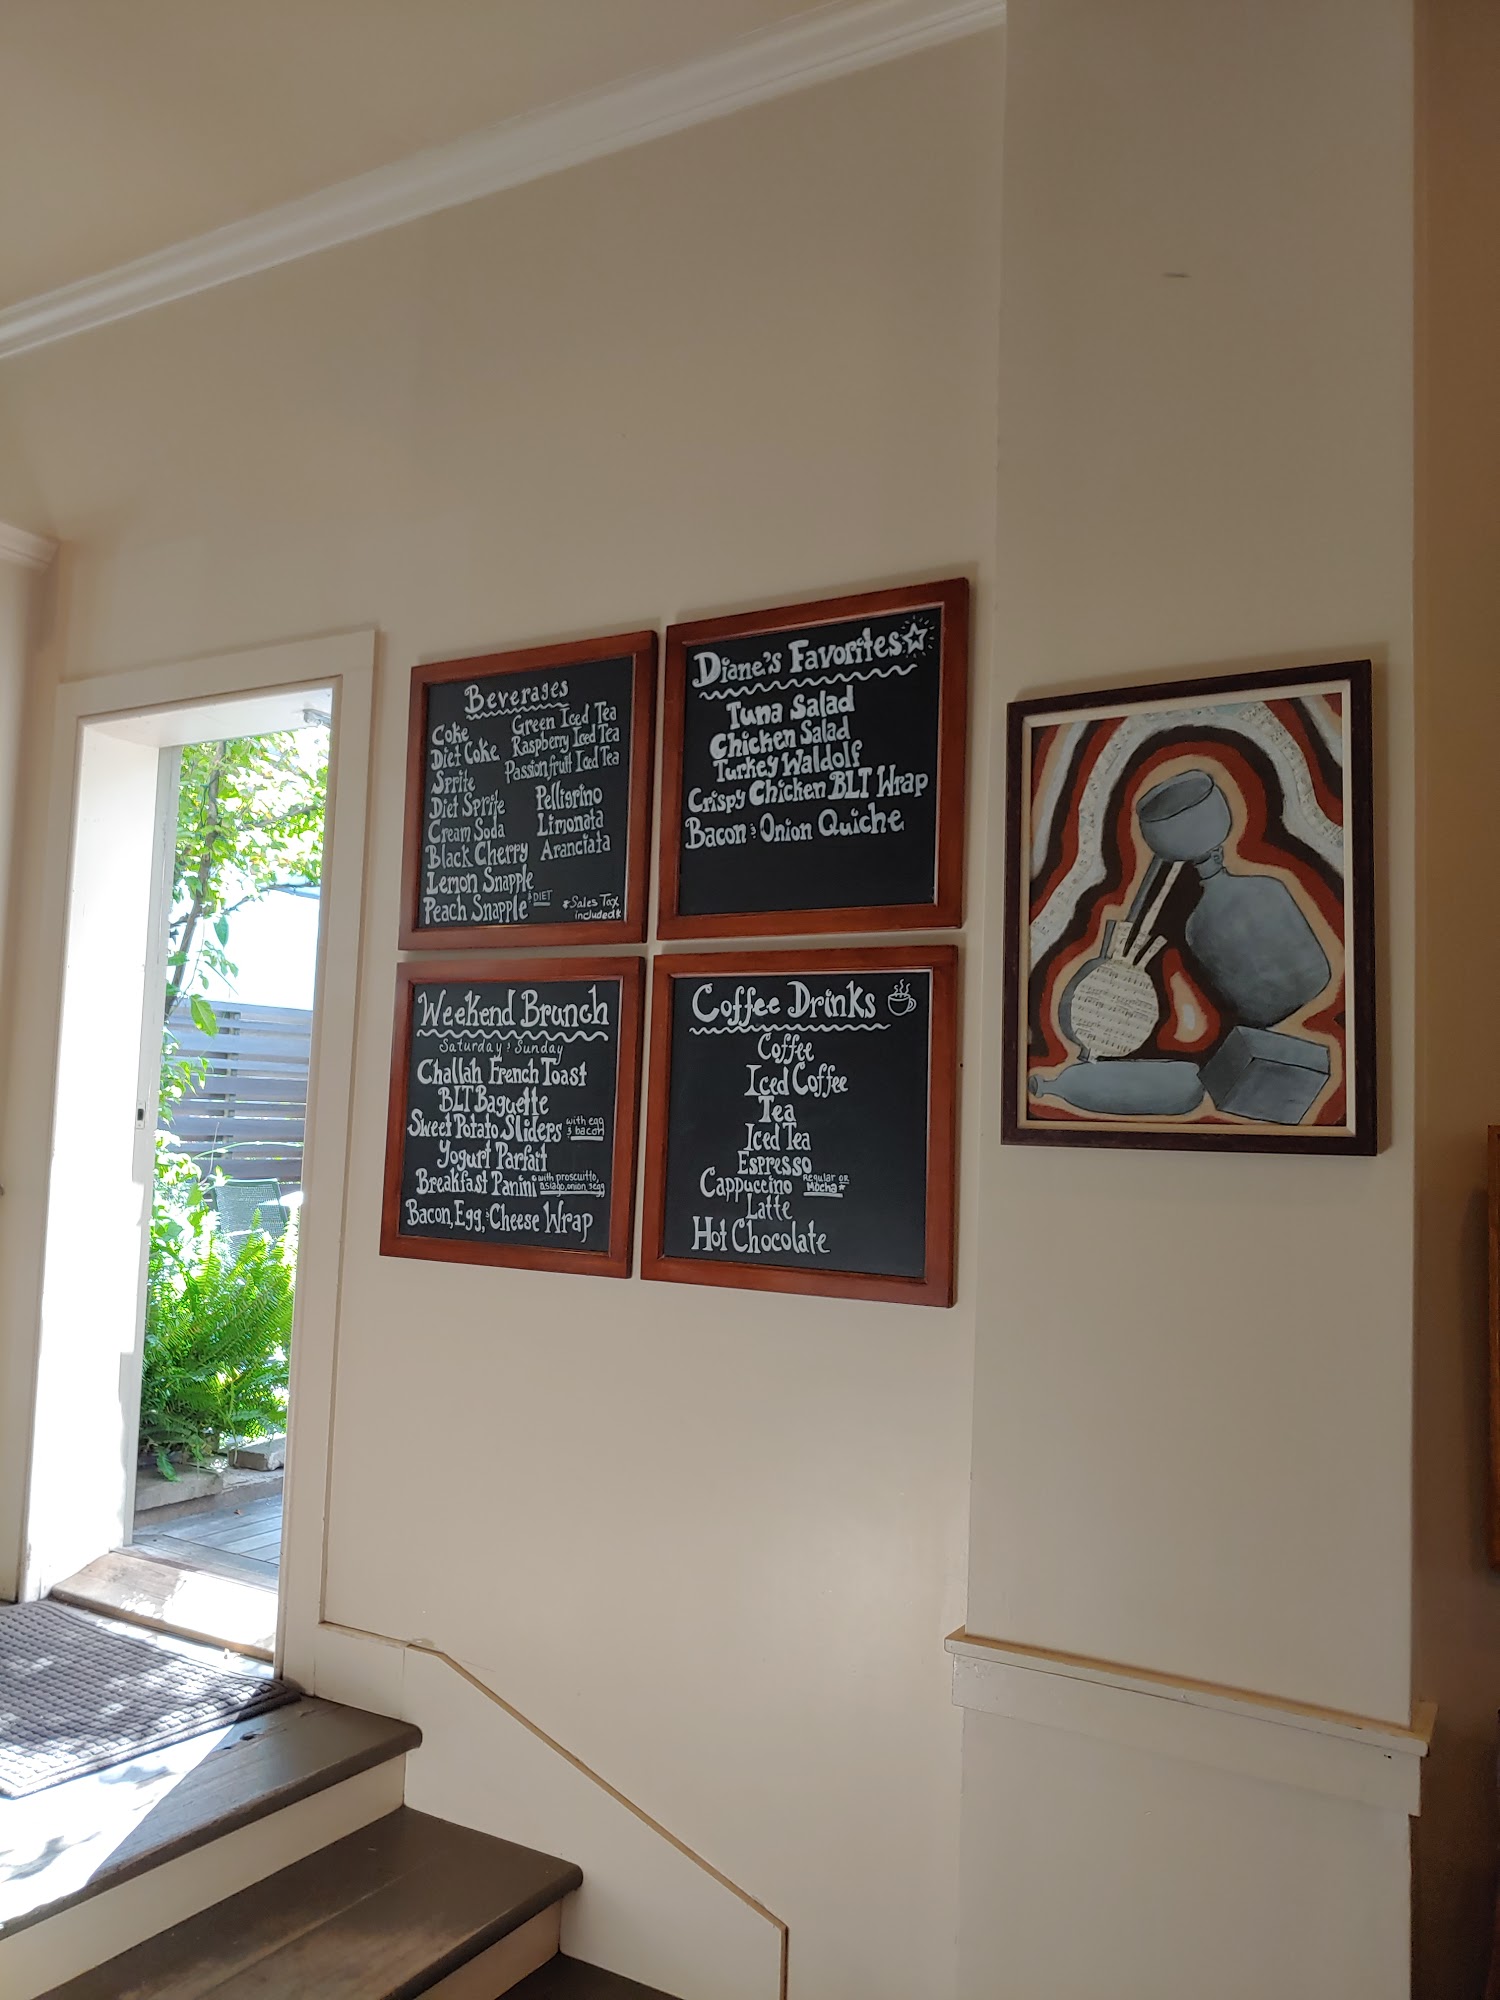 Beverages
Coke
Diet Coke
Sprite
Diet Sprite
Cream Soda
Black Cherry
Lemon Snapple
Peach Snapple & DIET
Green Iced Tea
Raspberry Iced Tea
Passionfruit Iced Tea
Pelligrino
Limonata
Aranciata
*Sales Tax
included*
Diane's Favorites
Tuna Salad
Chicken Salad
Turkey Waldolf
Crispy Chicken BLT Wrap
Bacon & Onion Quiche
Weekend Brunch
Saturday & Sunday
Challah French Toast
BLT Baguette
Sweet Potato Sliders with egg & bacon
Yogurt Parfait
Breakfast Panini with proscuitto, asiago, onion & egg
Bacon, Egg, & Cheese Wrap
Coffee Drinks
Coffee
Iced Coffee
Tea
Iced Tea
Espresso
Cappuccino Regular or Mocha*
Latte
Hot Chocolate